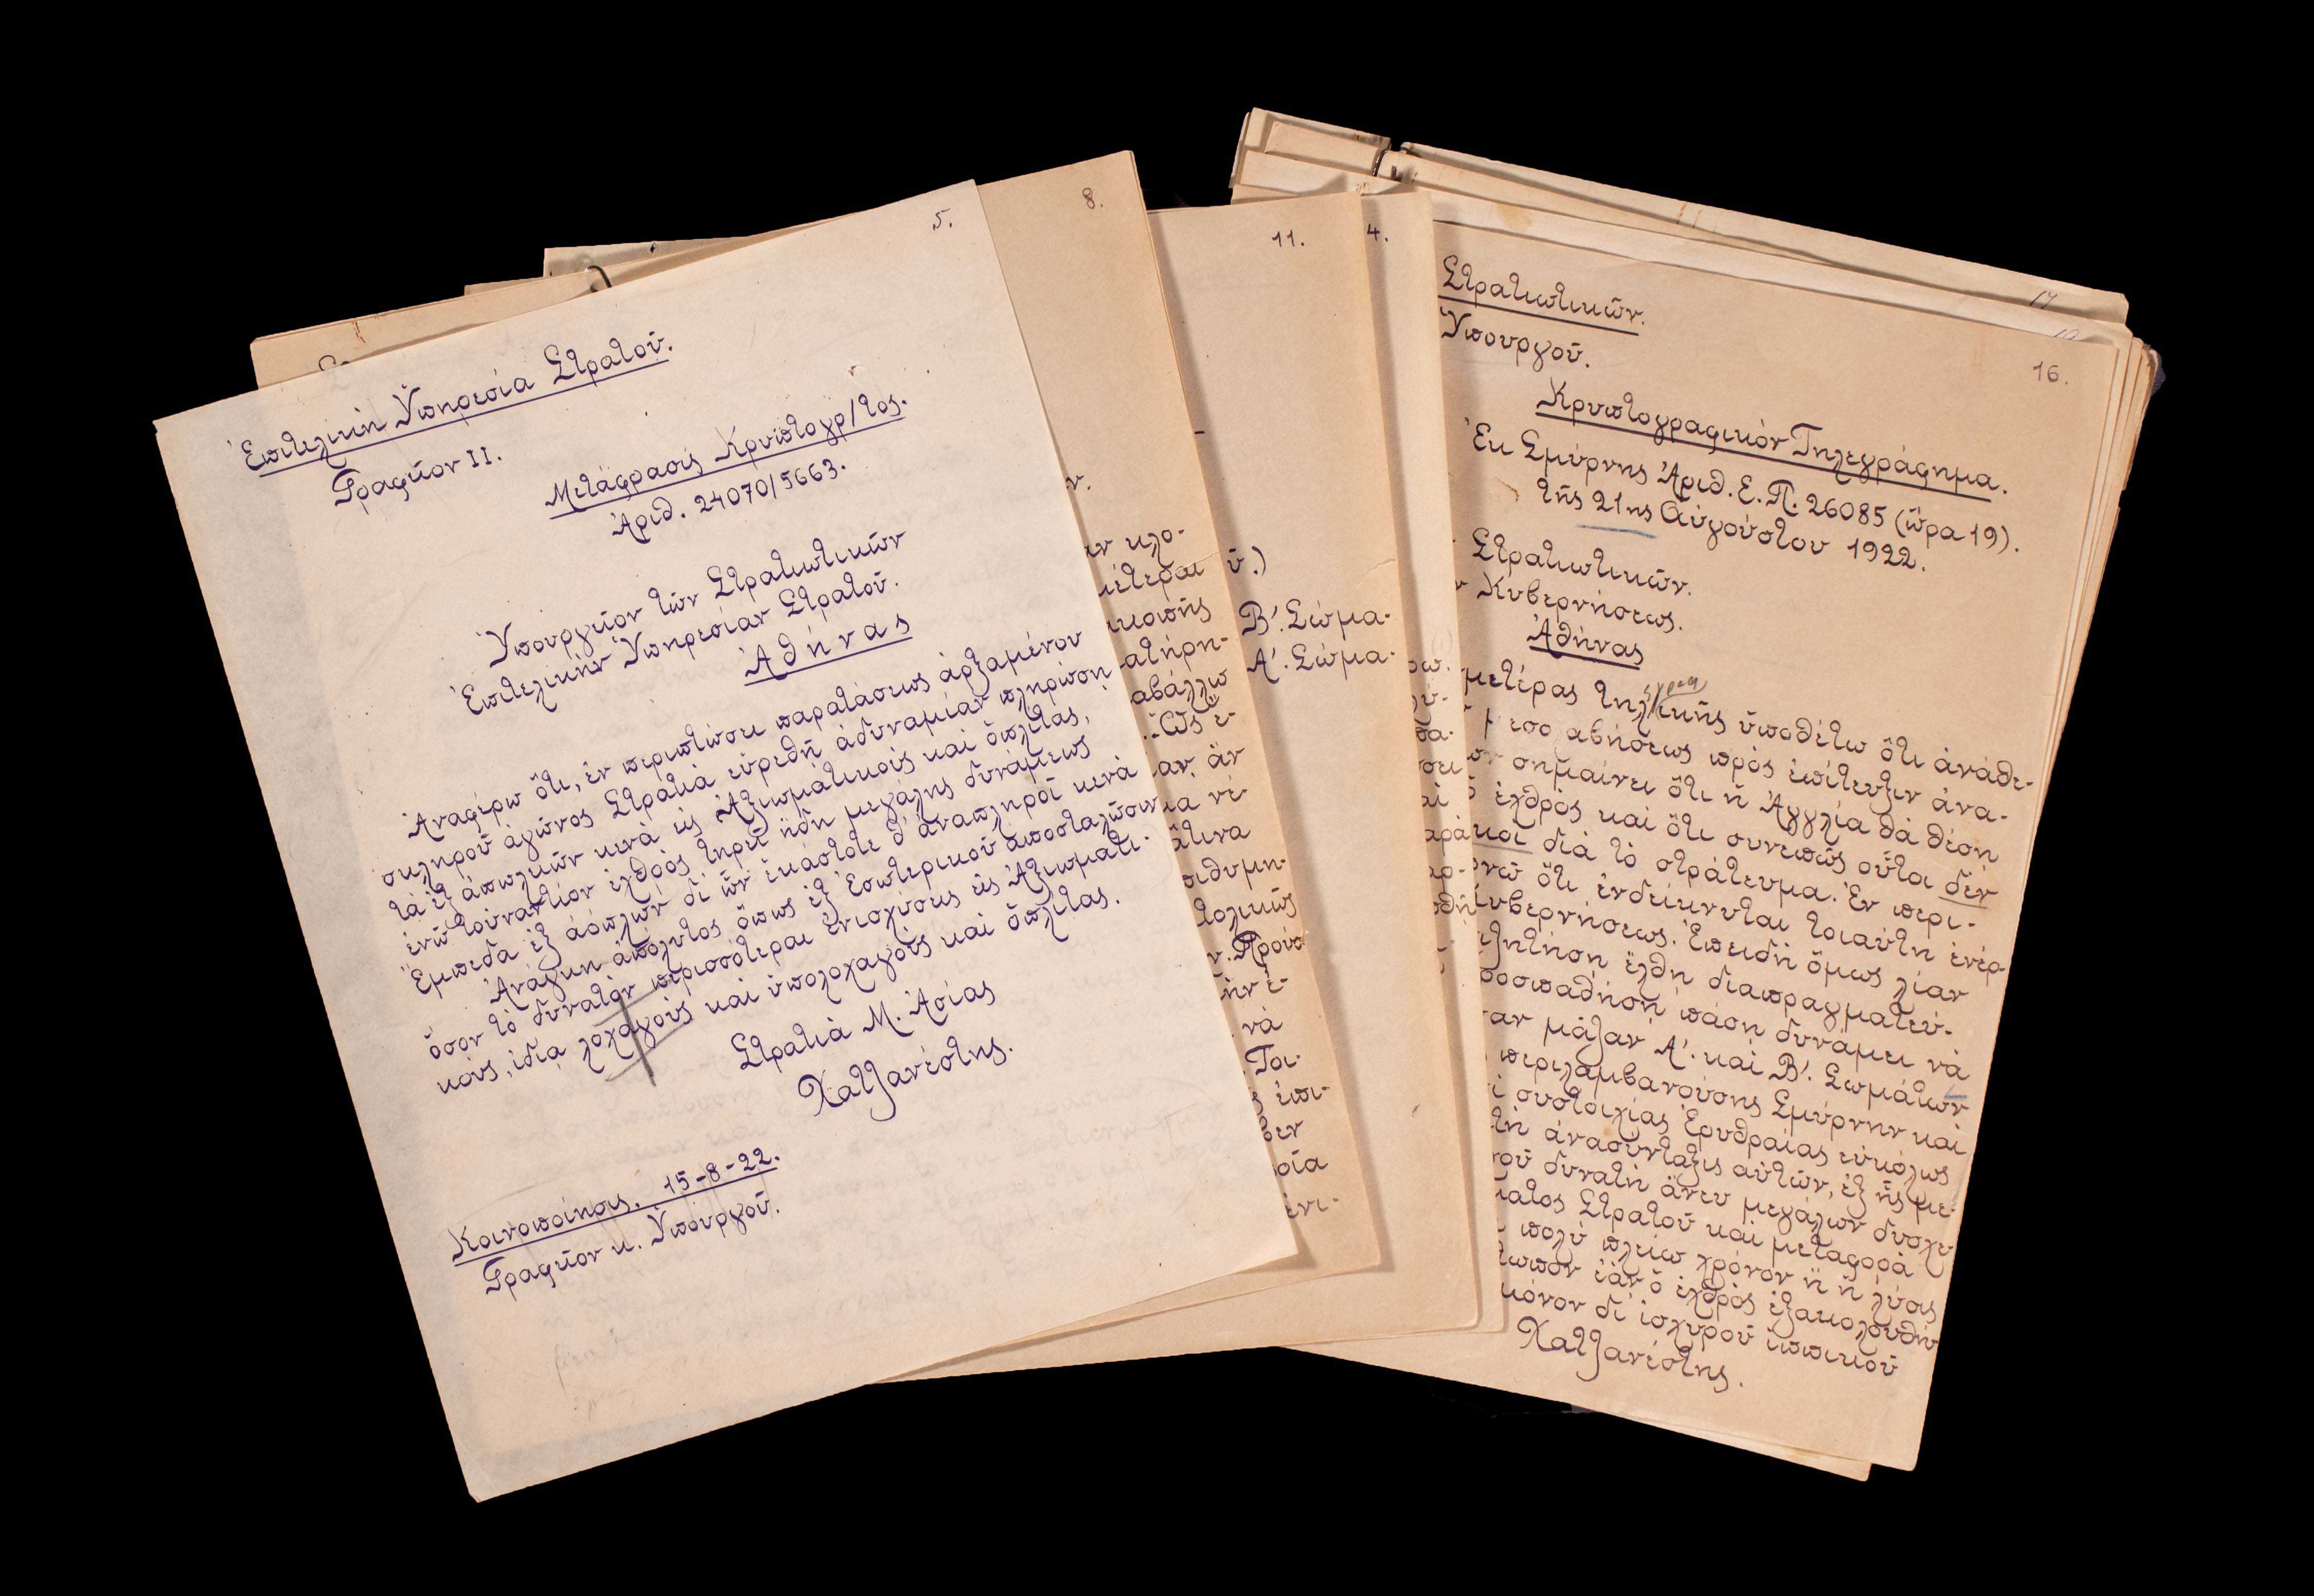 5.
Ἐπιτελικὴ Ὑπηρεσία Στρατοῦ.
Γραφεῖον II.
Μετάφρασις Κρυπτογρ/τος.
Ἀριθ. 24070/5663.
Ὑπουργεῖον τῶν Στρατιωτικῶν
Ἐπιτελικὴν Ὑπηρεσίαν Στρατοῦ.
Ἀθήνας
Ἀναφέρω ὅτι, ἐν περιπτώσει παρατάσεως ἀρξαμένου
σκληροῦ ἀγῶνος Στρατιὰ εὑρεθῇ ἀδυναμίαν πληρώσῃ
τὰ ἐξ ἀπωλειῶν κενὰ εἰς Ἀξιωματικοὺς καὶ ὁπλίτας,
ἐνῷ τοὐναντίον ἐχθρὸς τηρεῖ ἤδη μεγάλης δυνάμεως
Ἔμπεδα ἐξ ἀόπλων δι' ὧν ἑκάστοτε θ' ἀναπληροῖ κενὰ
Ἀνάγκη ἀπόλυτος ὅπως ἐξ Ἐσωτερικοῦ ἀποσταλῶσιν
ὅσον τὸ δυνατὸν περισσότεραι ἐνισχύσεις εἰς Ἀξιωματι-
κούς, ἰδίᾳ λοχαγοὺς καὶ ὑπολοχαγοὺς καὶ ὁπλίτας.
Στρατιὰ Μ. Ἀσίας
Χατζανέστης.
Κοινοποίησις. 15-8-22.
Γραφεῖον κ. Ὑπουργοῦ.
8.
ν.
ν κλο-
μέτεραι
ικοπῆς
ατήρη-
αβάλλω
Ὡς ἐ-
αν, ἂν
α νέ-
ἅτινα
ιθυμη-
τολικῶς
ν. Προύσ
ὴν ἐ-
νὰ
Τοι-
ς ἐπι-
θεν
οία
ένι-
11.
ῦ.)
Β'. Σώμα-
Α'. Σώμα-
4.
16.
Στρατιωτικῶν.
Ὑπουργοῦ.
Κρυπτογραφικὸν Τηλεγράφημα.
Ἐκ Σμύρνης Ἀριθ. Ε.Π. 26085 (ὥρα 19).
τῆς 21ης Αὐγούστου 1922.
Στρατιωτικῶν.
Κυβερνήσεως.
Ἀθήνας
μετέρας τηλ/κῆς ὑποθέτω ὅτι ἀνάθε-
μεσολαβήσεως πρὸς ἐπίτευξιν ἀνα-
ον σημαίνει ὅτι ἡ Ἀγγλία θὰ θέσῃ
ὁ ἐχθρὸς καὶ ὅτι συνεπῶς οὗτοι δὲν
κοι διὰ τὸ στράτευμα. Ἐν περι-
ονῶ ὅτι ἐνδείκνυται τοιαύτη ἐνέρ-
υβερνήσεως. Ἐπειδὴ ὅμως λίαν
ζητήσῃ ἔλθῃ διαπραγματεύ-
ροσπαθήσῃ πάσῃ δυνάμει νὰ
αν μάζαν Α'. καὶ Β'. Σωμάτων
περιλαμβανούσης Σμύρνην καὶ
συστοιχίας Ἐρυθραίας εὐκόλως
τὴ ἀνασύνταξις αὐτῶν, ἐξ ἧς με-
νοῦ δυνατὴ ἄνευ μεγάλων δυσχε
ματος Στρατοῦ καὶ μεταφορὰ
πολὺ πλείω χρόνον ἢ ἡ λύσις
ωπον ἐὰν ὁ ἐχθρὸς ἐξακολουθῇ
μόνον δι' ἰσχυροῦ ἱππικοῦ
Χατζανέστης.